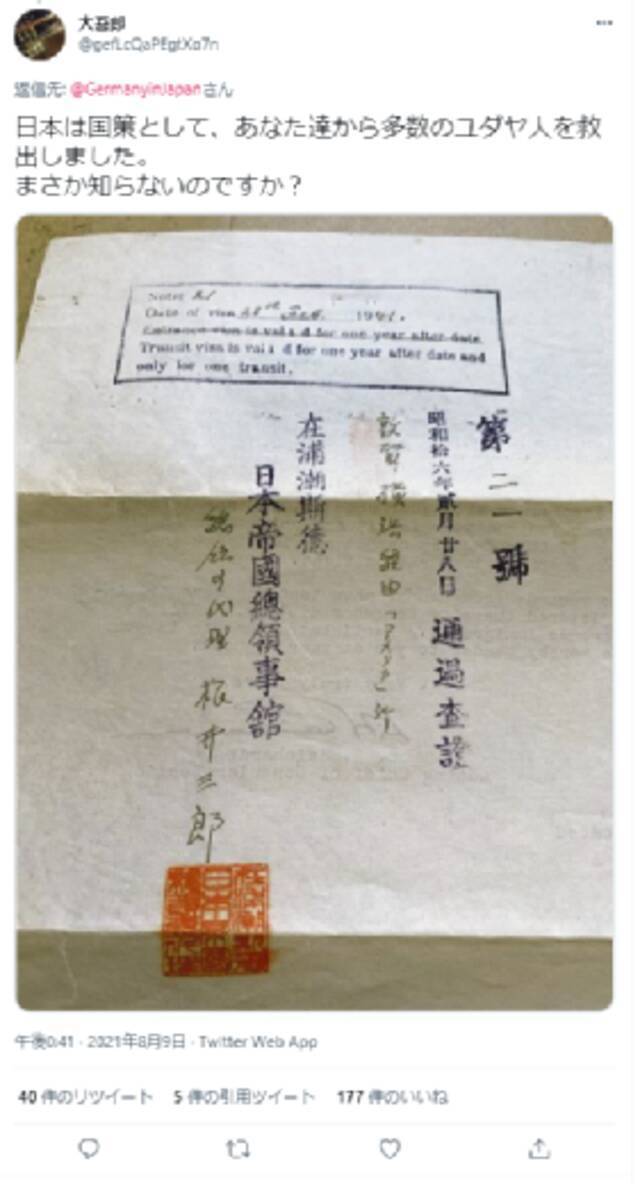 大吾郎
返信先: @GermanyinJapanさん
日本は国策として、あなた達から多数のユダヤ人を救
出しました。
まさか知らないのですか？
Date of visa
Entrance visa is vali d for one year after date
Transit visa is vali d for one year after date and
only for one transit.
第二一號
昭和拾六年貳月廿八日 通過査證
敦賀横浜経由
在浦潮斯德
日本帝國總領事館
総領事代理 根井三郎
午後0:41 · 2021年8月9日 · Twitter Web App
40 件のリツイート 5 件の引用ツイート 177 件のいいね